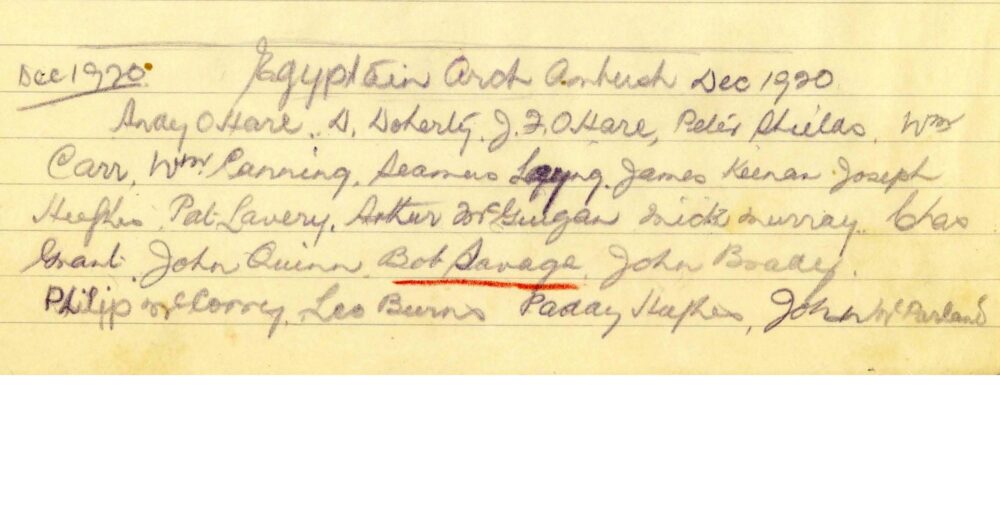 Dec 1920. Egyptain Arch Ambush Dec 1920
Andy O Hare, D. Doherty, J. F. O Hare, Peter Shields, Wm
Carr, Wm Canning, Seamus James Keenan Joseph
Hughes Pat Lavery, Arthur McGuigan Mick Murray. Chas
Grant. John Quinn. Bob Savage, John Brady.
Philip Leo Burns Paddy Hughes, John McParland